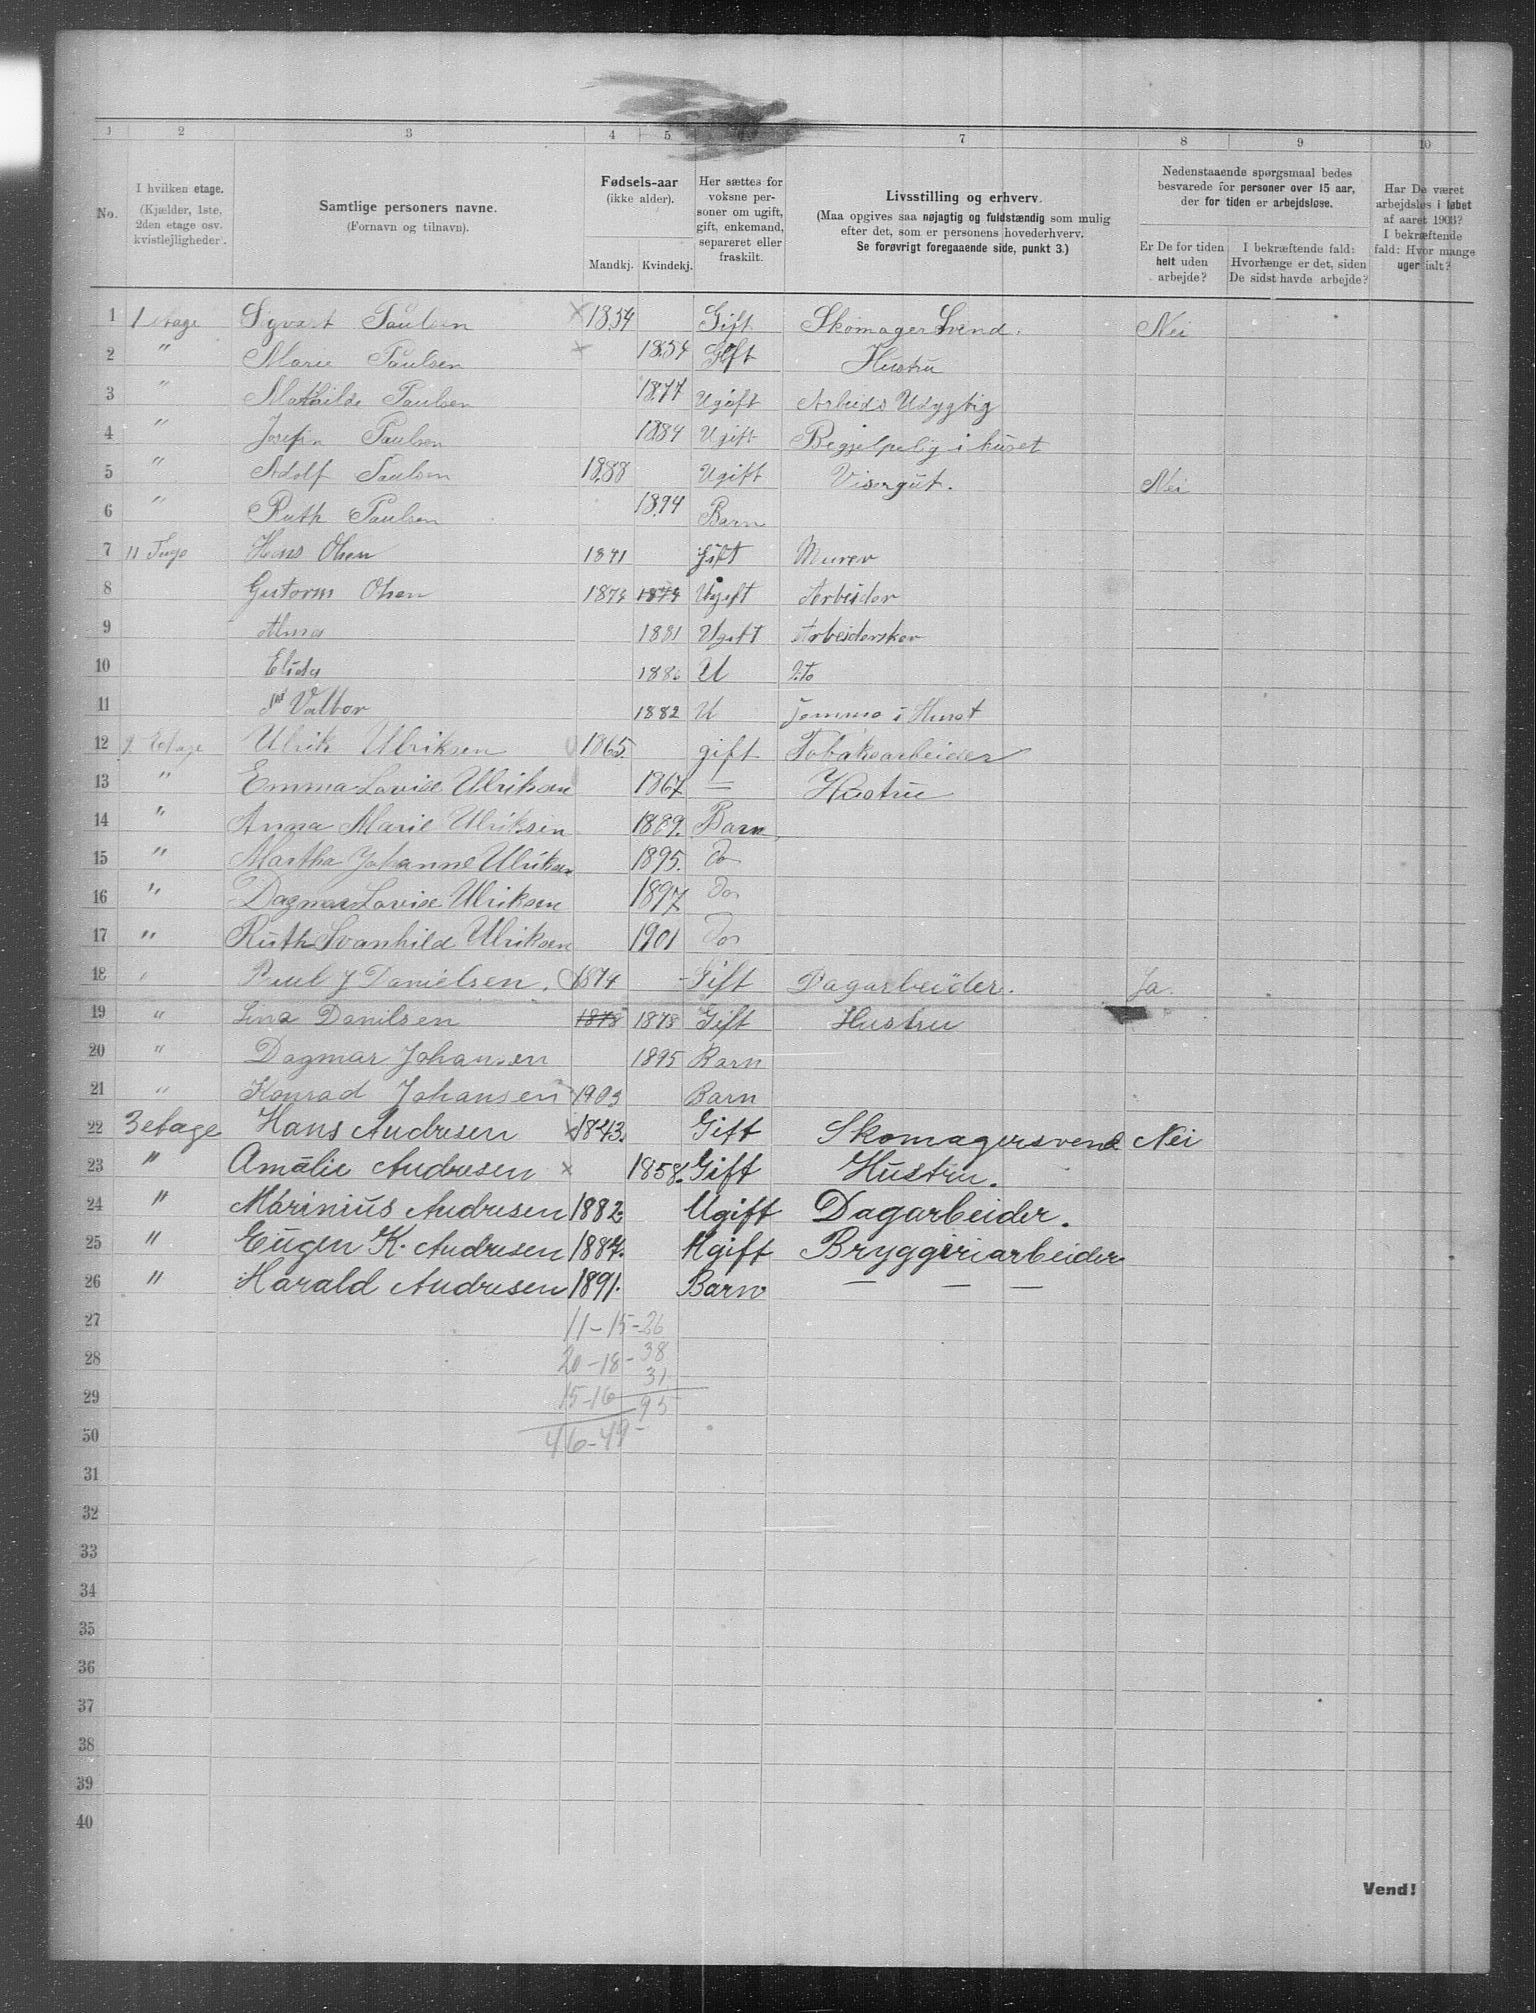 1 2 3 4 5 7 8 9 10
No. I hvilken etage. (Kjælder, 1ste, 2den etage osv. kvistlejligheder). Samtlige personers navne. (Fornavn og tilnavn). Fødsels-aar (ikke alder). Mandkj. Kvindekj. Her sættes for voksne personer om ugift, gift, enkemand, separeret eller fraskilt. Livsstilling og erhverv. (Maa opgives saa nøjagtig og fuldstændig som mulig efter det, som er personens hovederhverv. Se forøvrigt foregaaende side, punkt 3.) Nedenstaaende spørgsmaal bedes besvarede for personer over 15 aar, der for tiden er arbejdsløse. Er De for tiden helt uden arbejde? I bekræftende fald: Hvorlænge er det, siden De sidst havde arbejde? Har De været arbejdsløs i løbet af aaret 1903? I bekræftende fald: Hvor mange uger ialt?
1 1 etage Sigvart Paulsen × 1854 Gift Skomager Svend. Nei
2 " Marie Paulsen × 1854 Gift Hustru
3 " Mathilde Paulsen 1877 Ugift Arbeids Udygtig
4 " Josefin Paulsen 1884 Ugift i huset
5 " Adolf Paulsen 1888 Ugift Visergut. Nei
6 " Ruth Paulsen 1894 Barn
7 11 Hans Olsen 1841 Gift Murer
8 Gutorm Olsen 1874 1874 Ugift Arbeider
9 Alma 1881 Ugift Arbeiderske
10 Elida 1886 U
11 Valbor 1882 U i Huset
12 2 Etage Ulrik Ulriksen 1865. gift Tobaksarbeider
13 " Emma Lovise Ulriksen 1867 — Hustru
14 " Anna Marie Ulriksen 1889. Barn
15 " Martha Johanne Ulriksen 1895. Do
16 " Dagmar Lovise Ulriksen 1897 Do
17 " Ruth Svanhild Ulriksen 1901 Do
18 " J Danielsen. 1874 Gift Dagarbeider. Ja.
19 " Lina Danilsen 1878 1878 Gift Hustru
20 " Dagmar Johansen 1895 Barn
21 " Konrad Johansen 1903 Barn
22 3 etage Hans Andresen × 1843. Gift Skomagersvend Nei
23 " Amalie Andresen × 1858. Gift Hustru.
24 " Marinius Andresen 1882. Ugift Dagarbeider.
25 " Eugen K. Andresen 1887. Ugift Bryggeriarbeider
26 " Harald Andresen 1891. Barn — — —
27 11-15-26
28 20-18-38
31
29 15-16
95
30 46-49-
31
32
33
34
35
36
37
38
39
40
Vend!